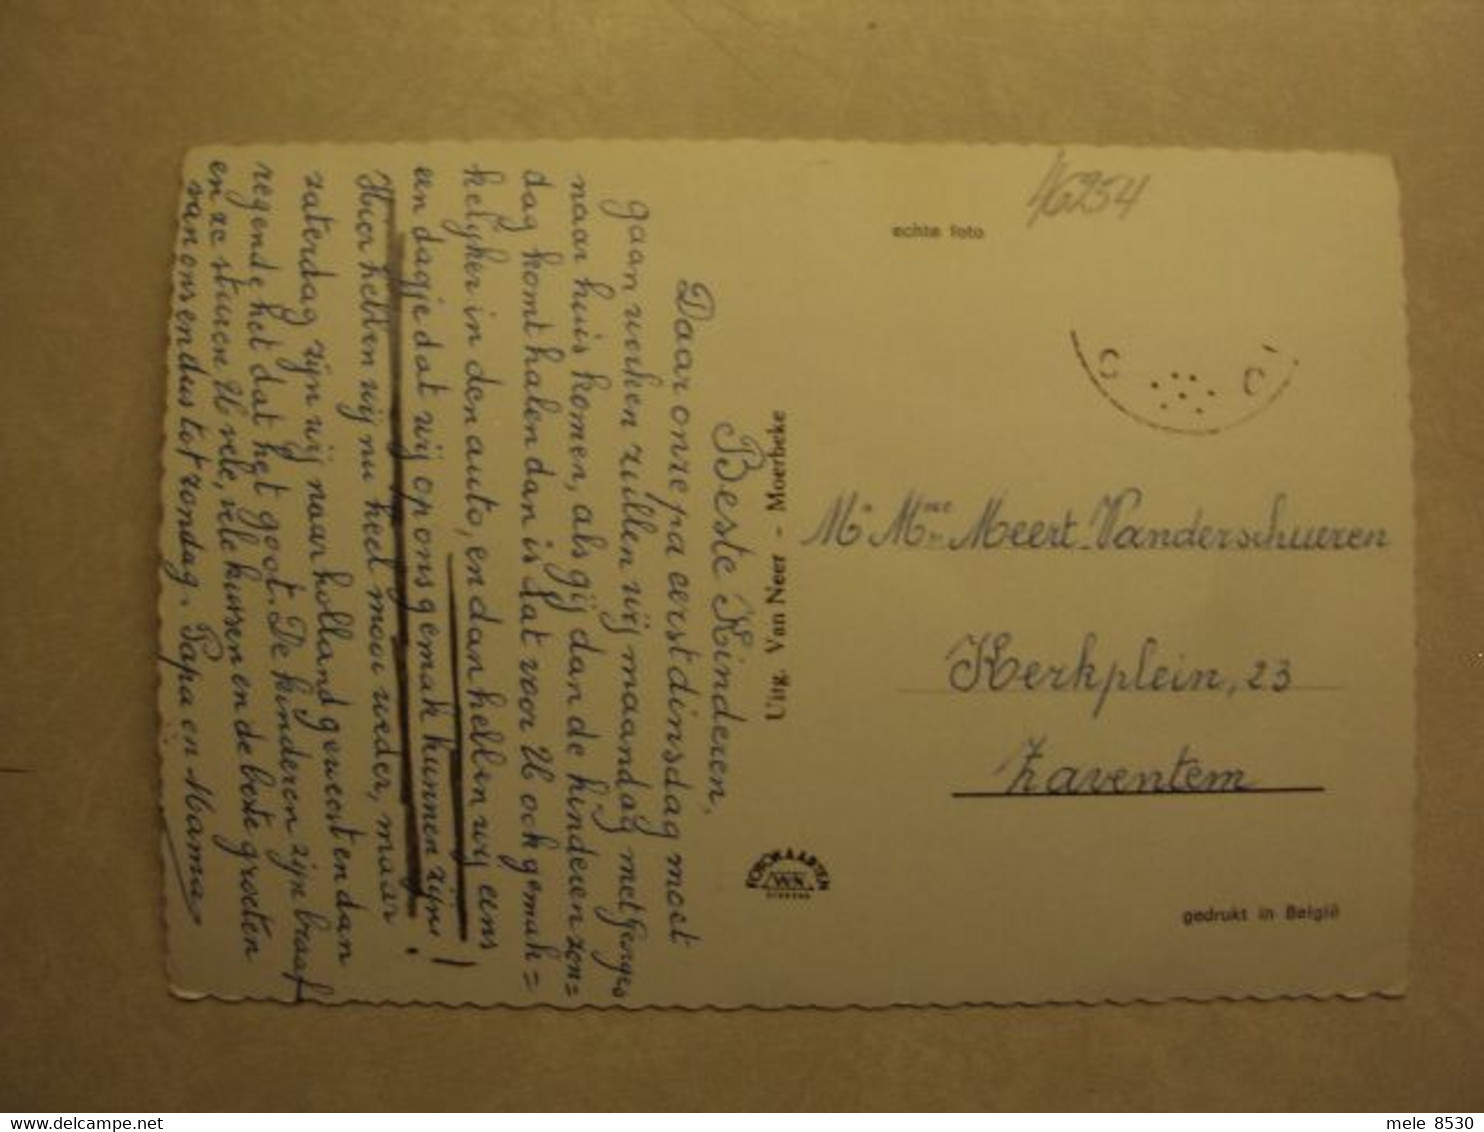 Beste Kinderen,
Daar onze pa eerst dinsdag moet
gaan werken zullen wij maandag met Georges
naar huis komen, als gij dan de kinderen zon=
dag komt halen dan is dat voor U ook gemak=
kelijker in den auto, en dan hebben wij eens
een dagje dat wij op ons gemak kunnen zijn!
Hier hebben wij nu heel mooi weder, maar
zaterdag zijn wij naar holland geweest en dan
regende het dat het goot. De kinderen zijn braaf
en ze sturen U vele, vele kussen en de beste groeten
van ons en dus tot zondag. Papa en Mama
Uitg. Van Neer - Moerbeke
echte foto
46254
Mr Mme Meert-Vanderschueren
Kerkplein, 23
Zaventem
FOTOKAARTEN
gedrukt in België
mele 8530